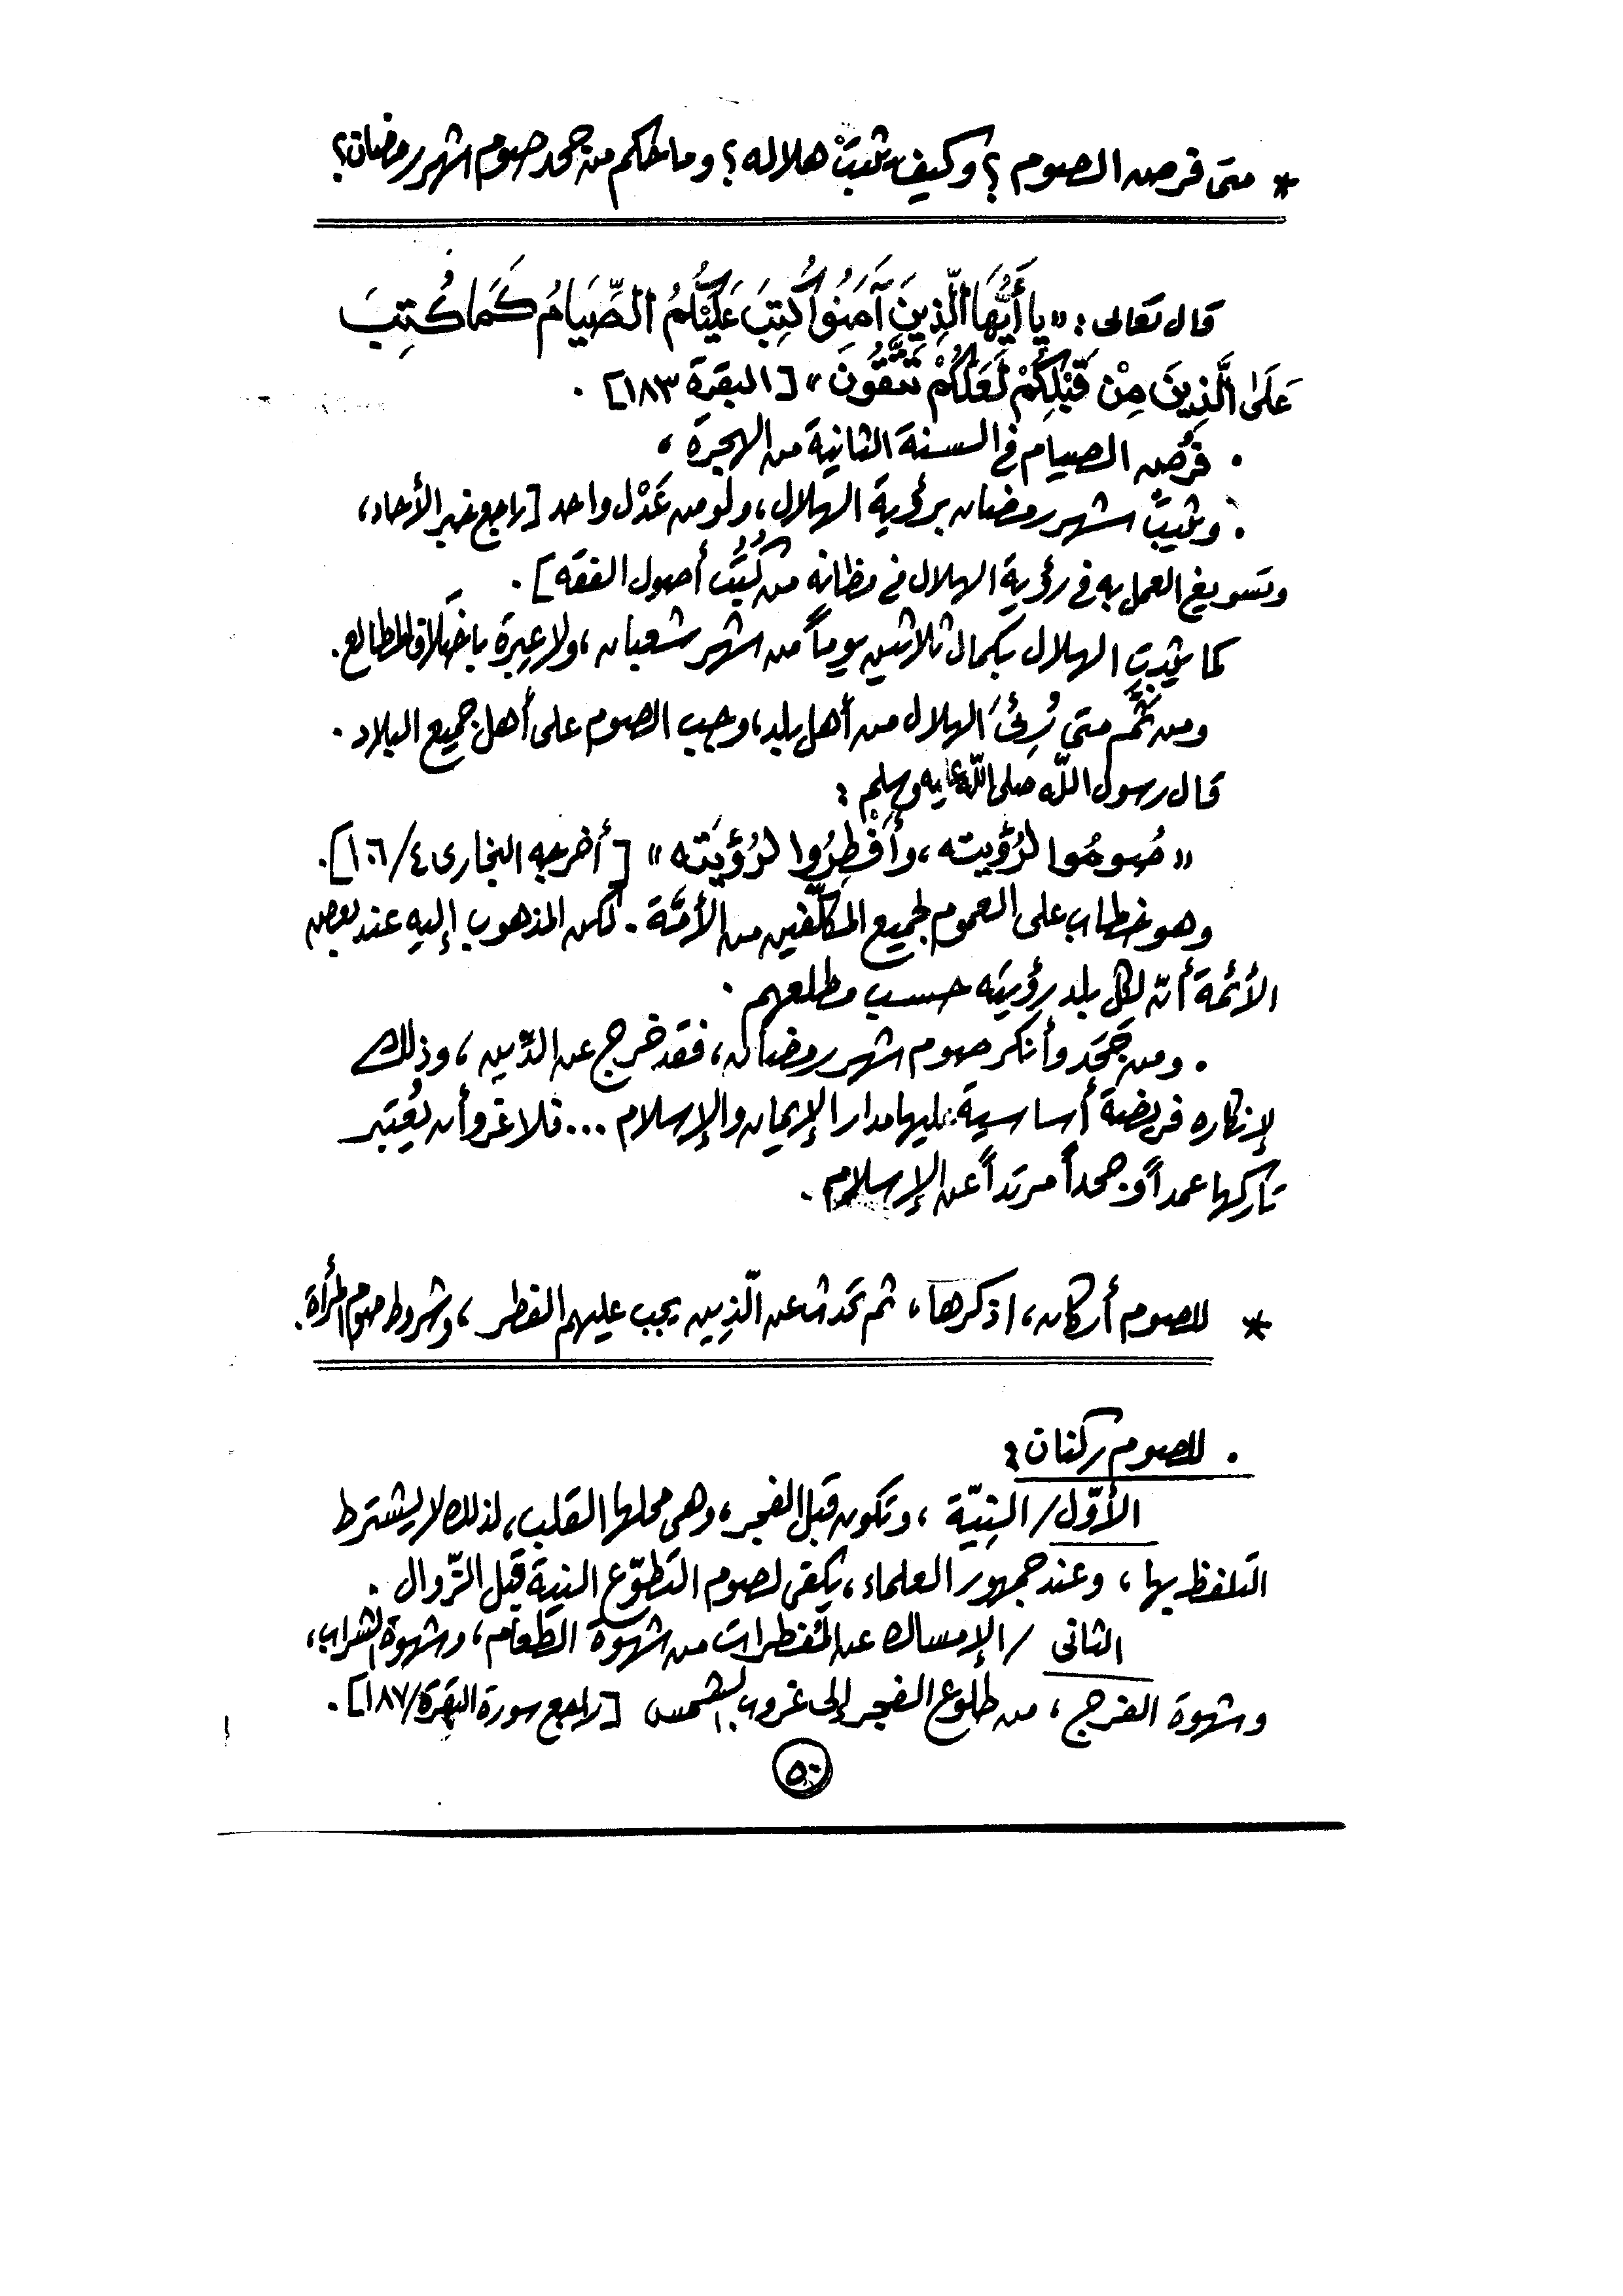 * متى فرض الصوم ؟ وكيف ثبت هلاله ؟ وما حكم من جحد صوم شهر رمضان ؟
قال تعالى : « يا أَيُّهَا الَّذِينَ آمَنُوا كُتِبَ عَلَيْكُمُ الصِّيَامُ كَمَا كُتِبَ
عَلَىٰ الَّذِينَ مِنْ قَبْلِكُمْ لَعَلَّكُمْ تَتَّقُونَ » [ البقرة ١٨٣ ] .
. فُرِض الصيام في السنة الثانية من الهجرة ،
. وثبت شهر رمضان برؤية الهلال ، ولو من عَدْل واحد [ راجع خبر الأحاد ،
وتسويغ العمل به في رؤية الهلال في مظانه من كُتُب أصول الفقه ] .
كما يثبت الهلال بكمال ثلاثين يوماً من شهر شعبان ، ولا عبرة باختلاف المطالع .
ومن ثَمَّ متى رُئِيَ الهلال من أهل بلد ، وجب الصوم على أهل جميع البلاد .
قال رسول الله صلى الله عليه وسلم :
« صُومُوا لرُؤيته ، وأَفْطِرُوا لرُؤيَته » [ أخرجه البخارى ٤/١٠٦ ] .
وهو خطاب على العموم لجميع المكلّفين من الأمّة . لكن المذهوب إليه عند بعض
الأئمة أنّ لكل بلد رؤيته حسب مطلعهم .
. ومن جَحَد وأنكر صوم شهر رمضان ، فقد خرج عن الدّين ، وذلك
لإنكاره فريضة أساسية عليها مدار الإيمان والإسلام ... فلا غرو أن يُعتبر
تاركها عمداً وجحداً مرتداً عن الإسلام .
* للصوم أركان ، اذكرها ، ثم تحدث عن الّذين يجب عليهم الفطر ، وشروط صوم المرأة .
. للصوم ركنان :
الأوّل / النِيّة ، وتكون قبل الفجر ، وهى محلها القلب ، لذلك لا يشترط
التلفظ بها ، وعند جمهور العلماء ، يكفى لصوم التطوّع النية قبل الزّوال .
الثانى / الإمساك عن المُفطرات من شهوة الطعام ، وشهوة الشراب ،
وشهوة الفرج ، من طلوع الفجر إلى غروب الشمس [ راجع سورة البقرة / ١٨٧ ] .
٥٠